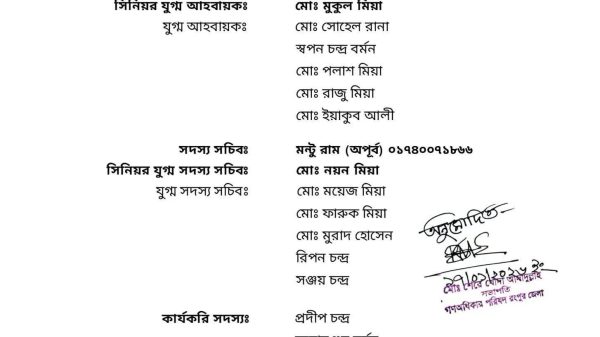 সিনিয়র যুগ্ম আহবায়কঃ মোঃ মুকুল মিয়া
যুগ্ম আহবায়কঃ মোঃ সোহেল রানা
স্বপন চন্দ্র বর্মন
মোঃ পলাশ মিয়া
মোঃ রাজু মিয়া
মোঃ ইয়াকুব আলী
সদস্য সচিবঃ মন্টু রাম (অপূর্ব) ০১৭৪০০৭১৮৬৬
সিনিয়র যুগ্ম সদস্য সচিবঃ মোঃ নয়ন মিয়া
যুগ্ম সদস্য সচিবঃ মোঃ ময়েজ মিয়া
মোঃ ফারুক মিয়া
মোঃ মুরাদ হোসেন
রিপন চন্দ্র
সঞ্জয় চন্দ্র
অনুমোদিত
মোঃ শেরে খোদা আসাদুল্লাহ
সভাপতি
গণঅধিকার পরিষদ রংপুর জেলা
কার্যকরি সদস্যঃ প্রদীপ চন্দ্র